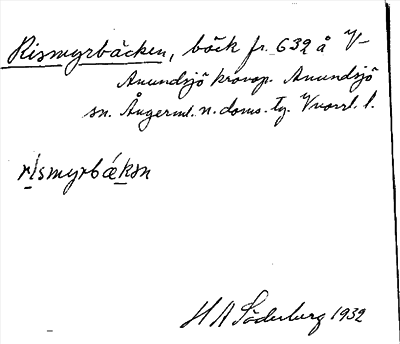 Rismyrbäcken, bäck fr. 632 å V-
Anundsjö kronop. Anundsjö
sn. Ångerml. n. doms. tg. Vnorrl. l.
rismyrbǽksn
H A Söderberg 1932